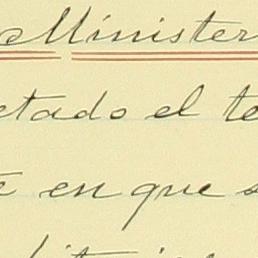 Minister
etado el te
en que s